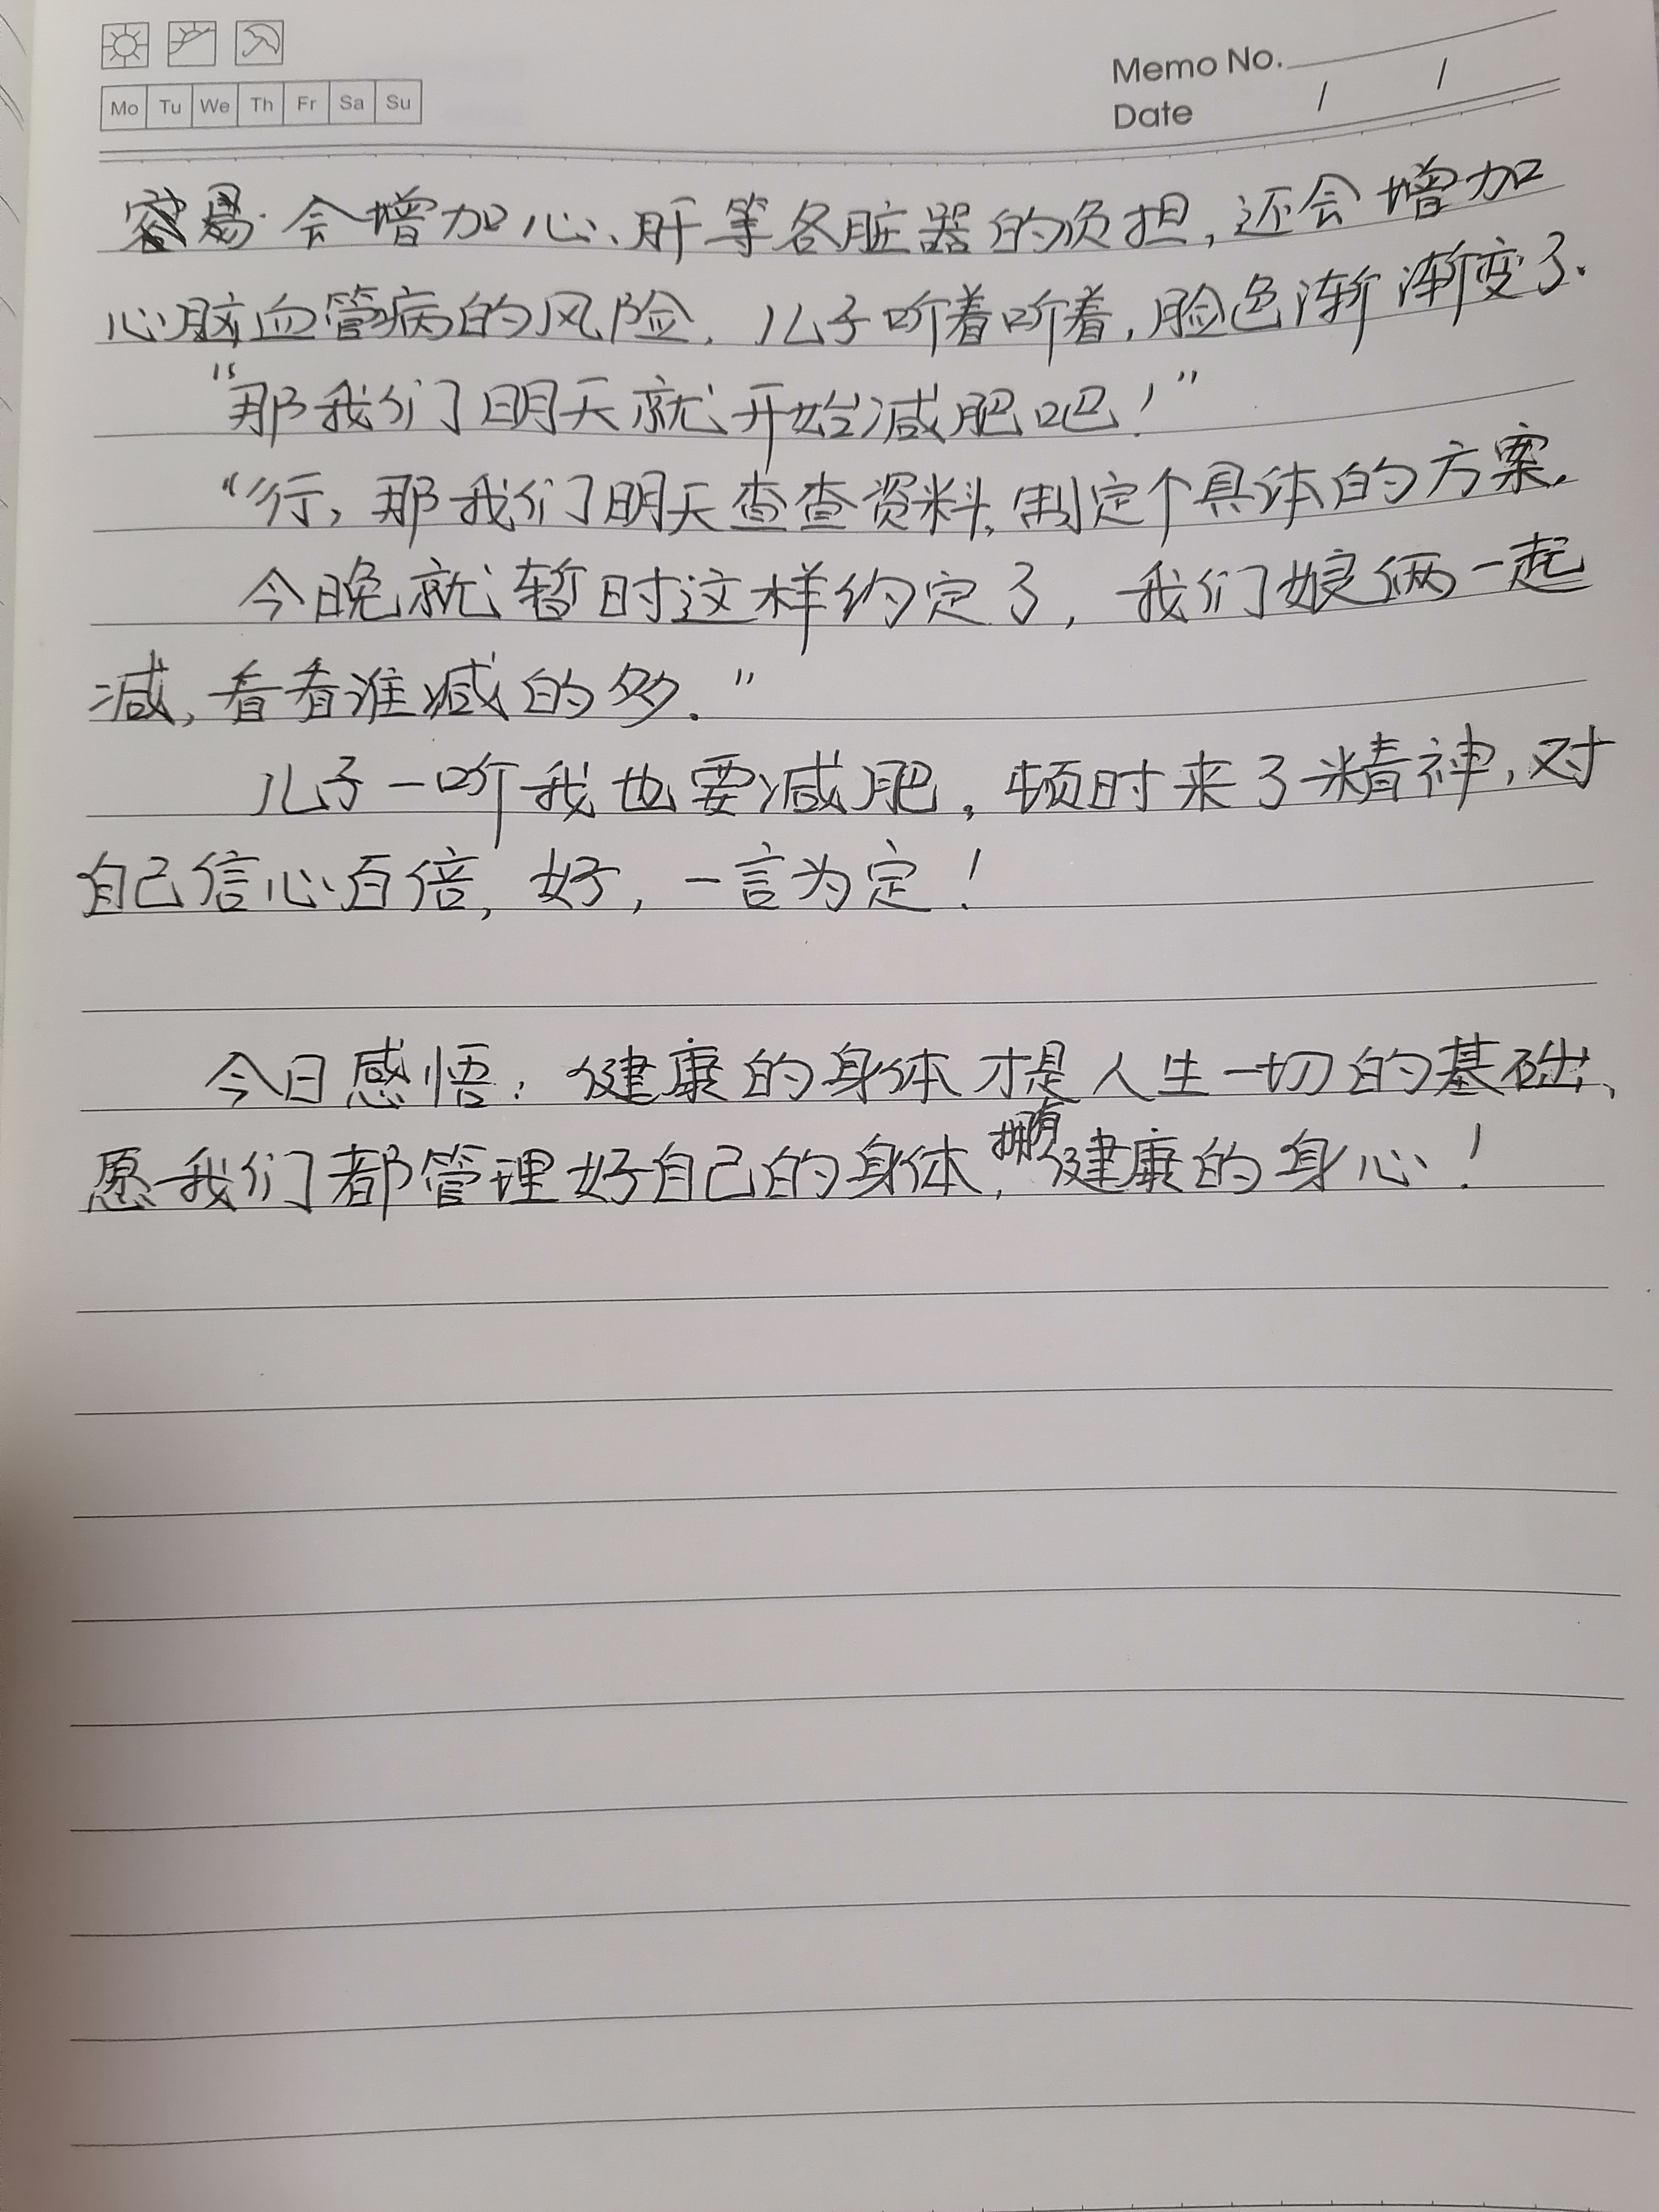 Memo No.
Mo Tu We Th Fr Sa Su
Date / /
容易会增加心、肝等各脏器的负担,还会增加
心脑血管病的风险。儿子听着听着,脸色渐渐变了.
“那我们明天就开始减肥吧!”
“行,那我们明天查查资料,制定个具体的方案。
今晚就暂时这样约定了,我们娘俩一起
减,看看谁减的多.”
儿子一听我也要减肥。顿时来了精神,对
自己信心百倍,好,一言为定!
今日感悟:健康的身体才是人生一切的基础、
愿我们都管理好自己的身体,拥有健康的身心!